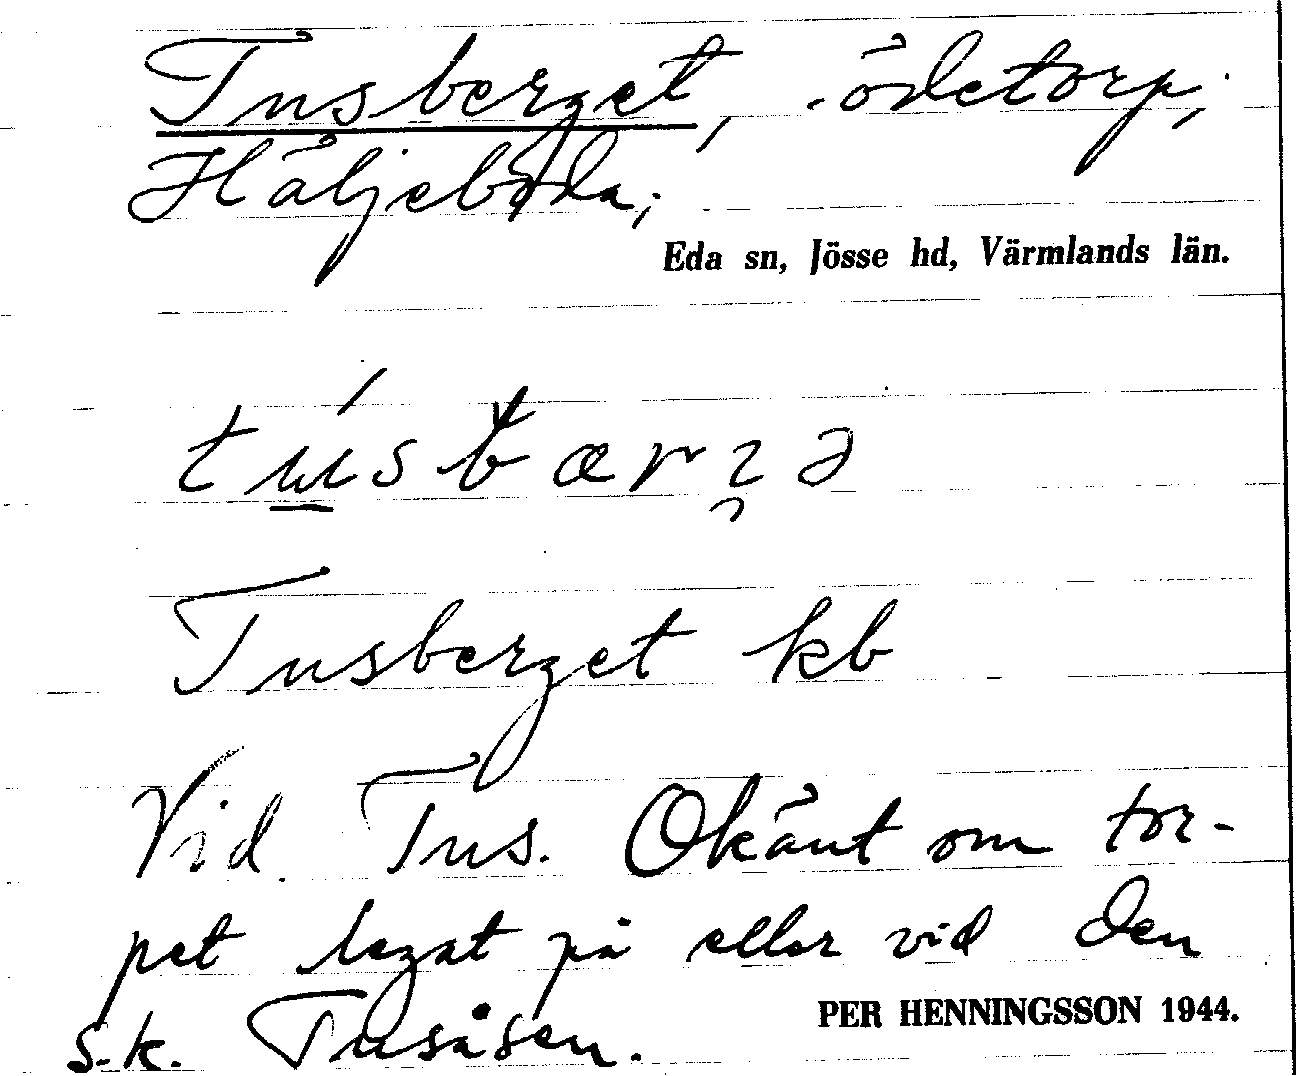 Tusberget, ödetorp,
Häljeboda;
Eda sn, Jösse hd, Värmlands län.
Tusberget kb
Vid Tus. Okänt om tor-
pet legat på eller vid den
s.k. Tusåsen.
PER HENNINGSSON 1944.